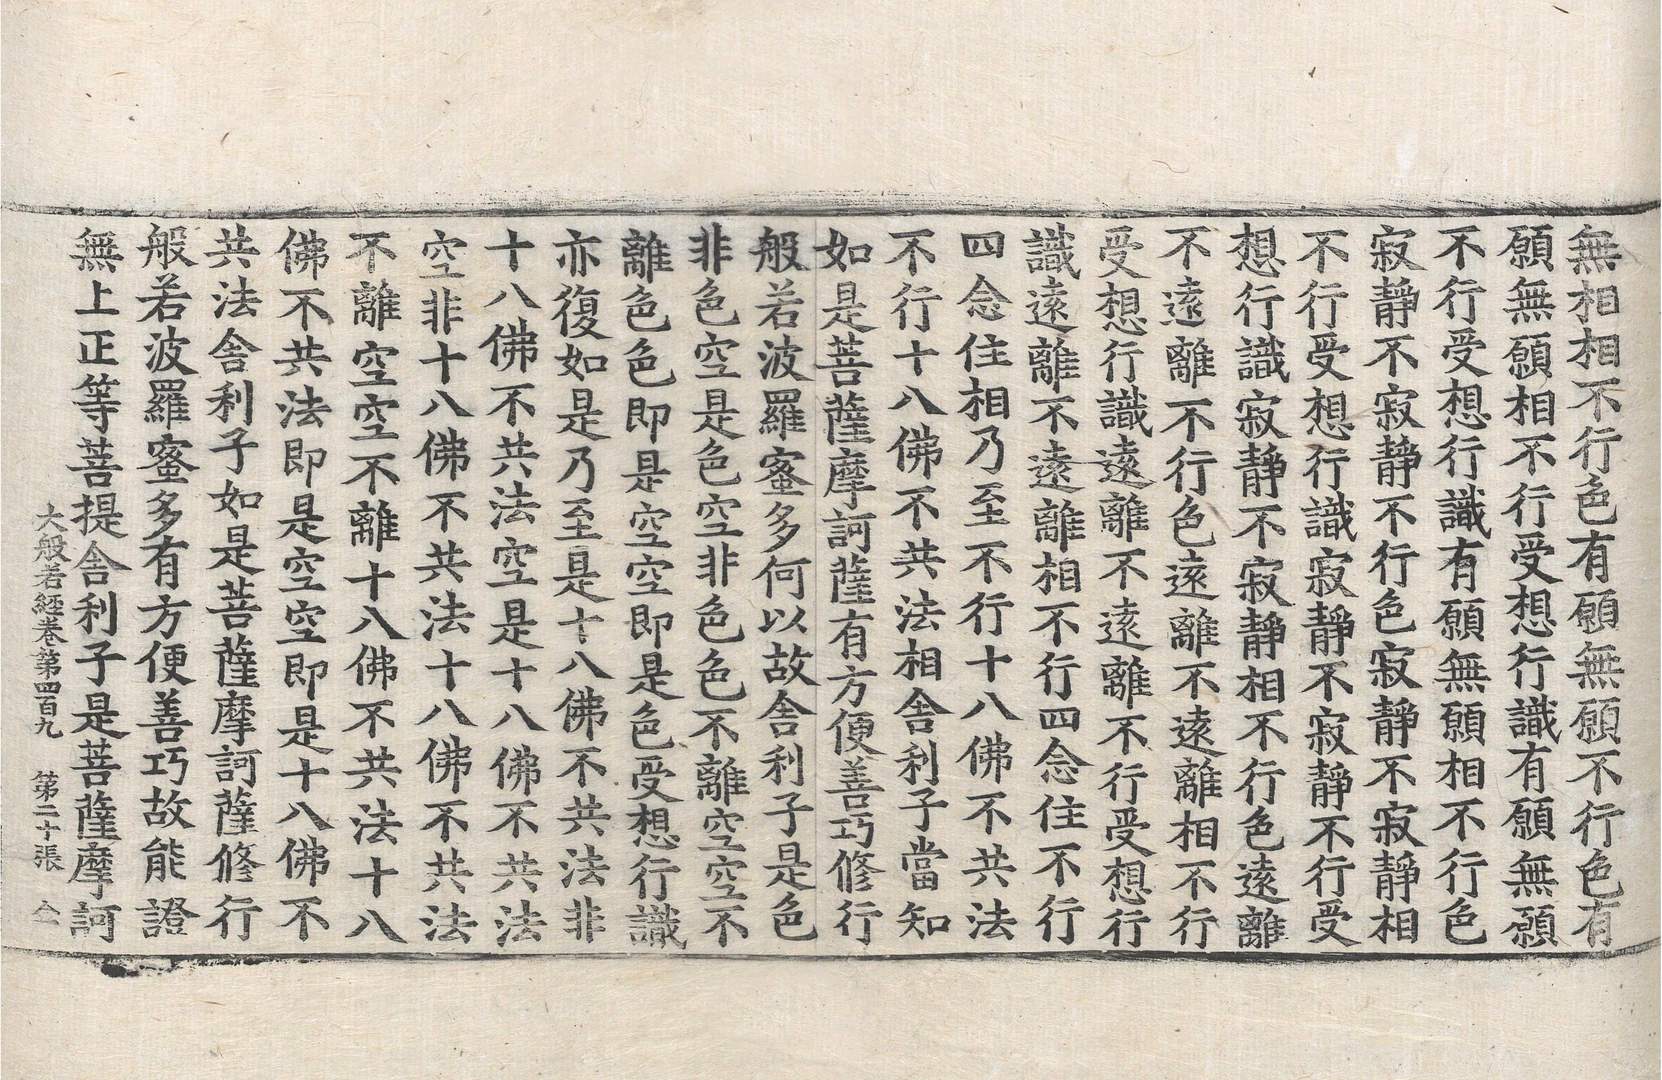 無相相不行色有願無願不行色有
願無願相不行受想行識有願無願
不行受想行識有願無願相不行色
寂靜不寂靜不行色寂靜不寂靜相
不行受想行識寂靜不寂靜不行受
想行識寂靜不寂靜相不行色遠離
不遠離不行色遠離不遠離相不行
受想行識遠離不遠離不行受想行
識遠離不遠離相不行四念住不行
四念住相乃至不行十八佛不共法
不行十八佛不共法相舍利子當知
如是菩薩摩訶薩有方便善巧修行
般若波羅蜜多何以故舍利子是色
非色空是色空非色色不離空空不
離色色即是空空即是色受想行識
亦復如是乃至是十八佛不共法非
十八佛不共法空是十八佛不共法
空非十八佛不共法十八佛不共法
不離空空不離十八佛不共法十八
佛不共法即是空空即是十八佛不
共法舍利子如是菩薩摩訶薩修行
般若波羅蜜多有方便善巧故能證
無上正等菩提舍利子是菩薩摩訶
大般若經卷第四百九 第二十張